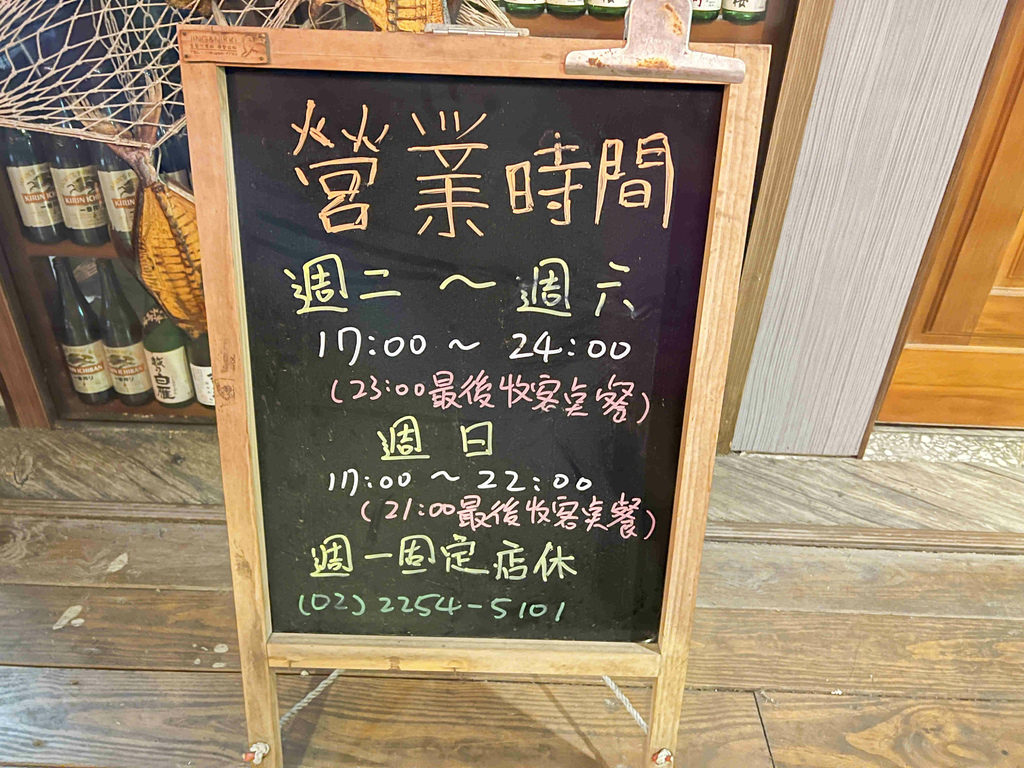 營業時間
週二 ~ 週六
17:00 ~ 24:00
(23:00最後收客桌餐)
週日
17:00 ~ 22:00
(21:00最後收客桌餐)
週一固定店休
(02) 2254-5101
KIRIN
一番搾り
白雁